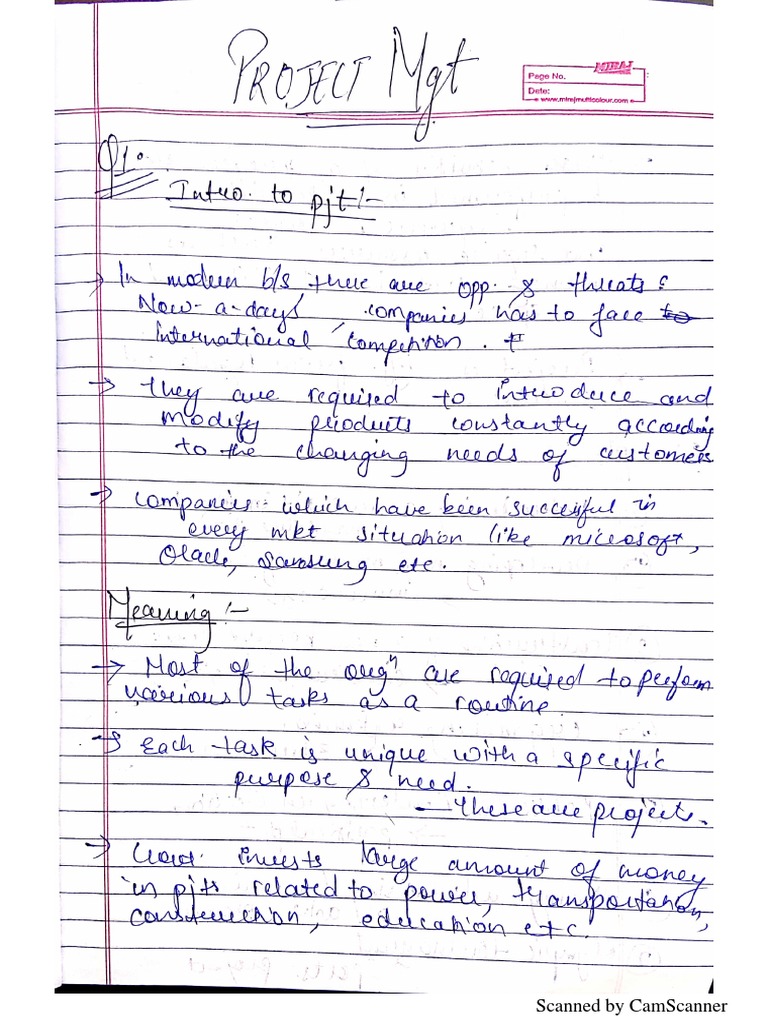 PROJECT Mgt
MIRAJ
Page No.
Date:
www.mirajmulticolour.com
Q1.
Intro. to pjt:-
→ In modern b/s there are opp. & threats.
Now-a-days companies has to face to
international competition.
→ they are required to introduce and
modify products constantly according
to the changing needs of customers
→ companies which have been successful in
every mkt situation like microsoft,
Oracle, Samsung etc.
Meaning :-
→ Most of the orgⁿ are required to perform
various tasks as a routine
→ Each task is unique with a specific
purpose & need.
— these are projects.
→ Govt. invests large amount of money
in pjts related to power, transportation,
construction, education etc.
Scanned by CamScanner